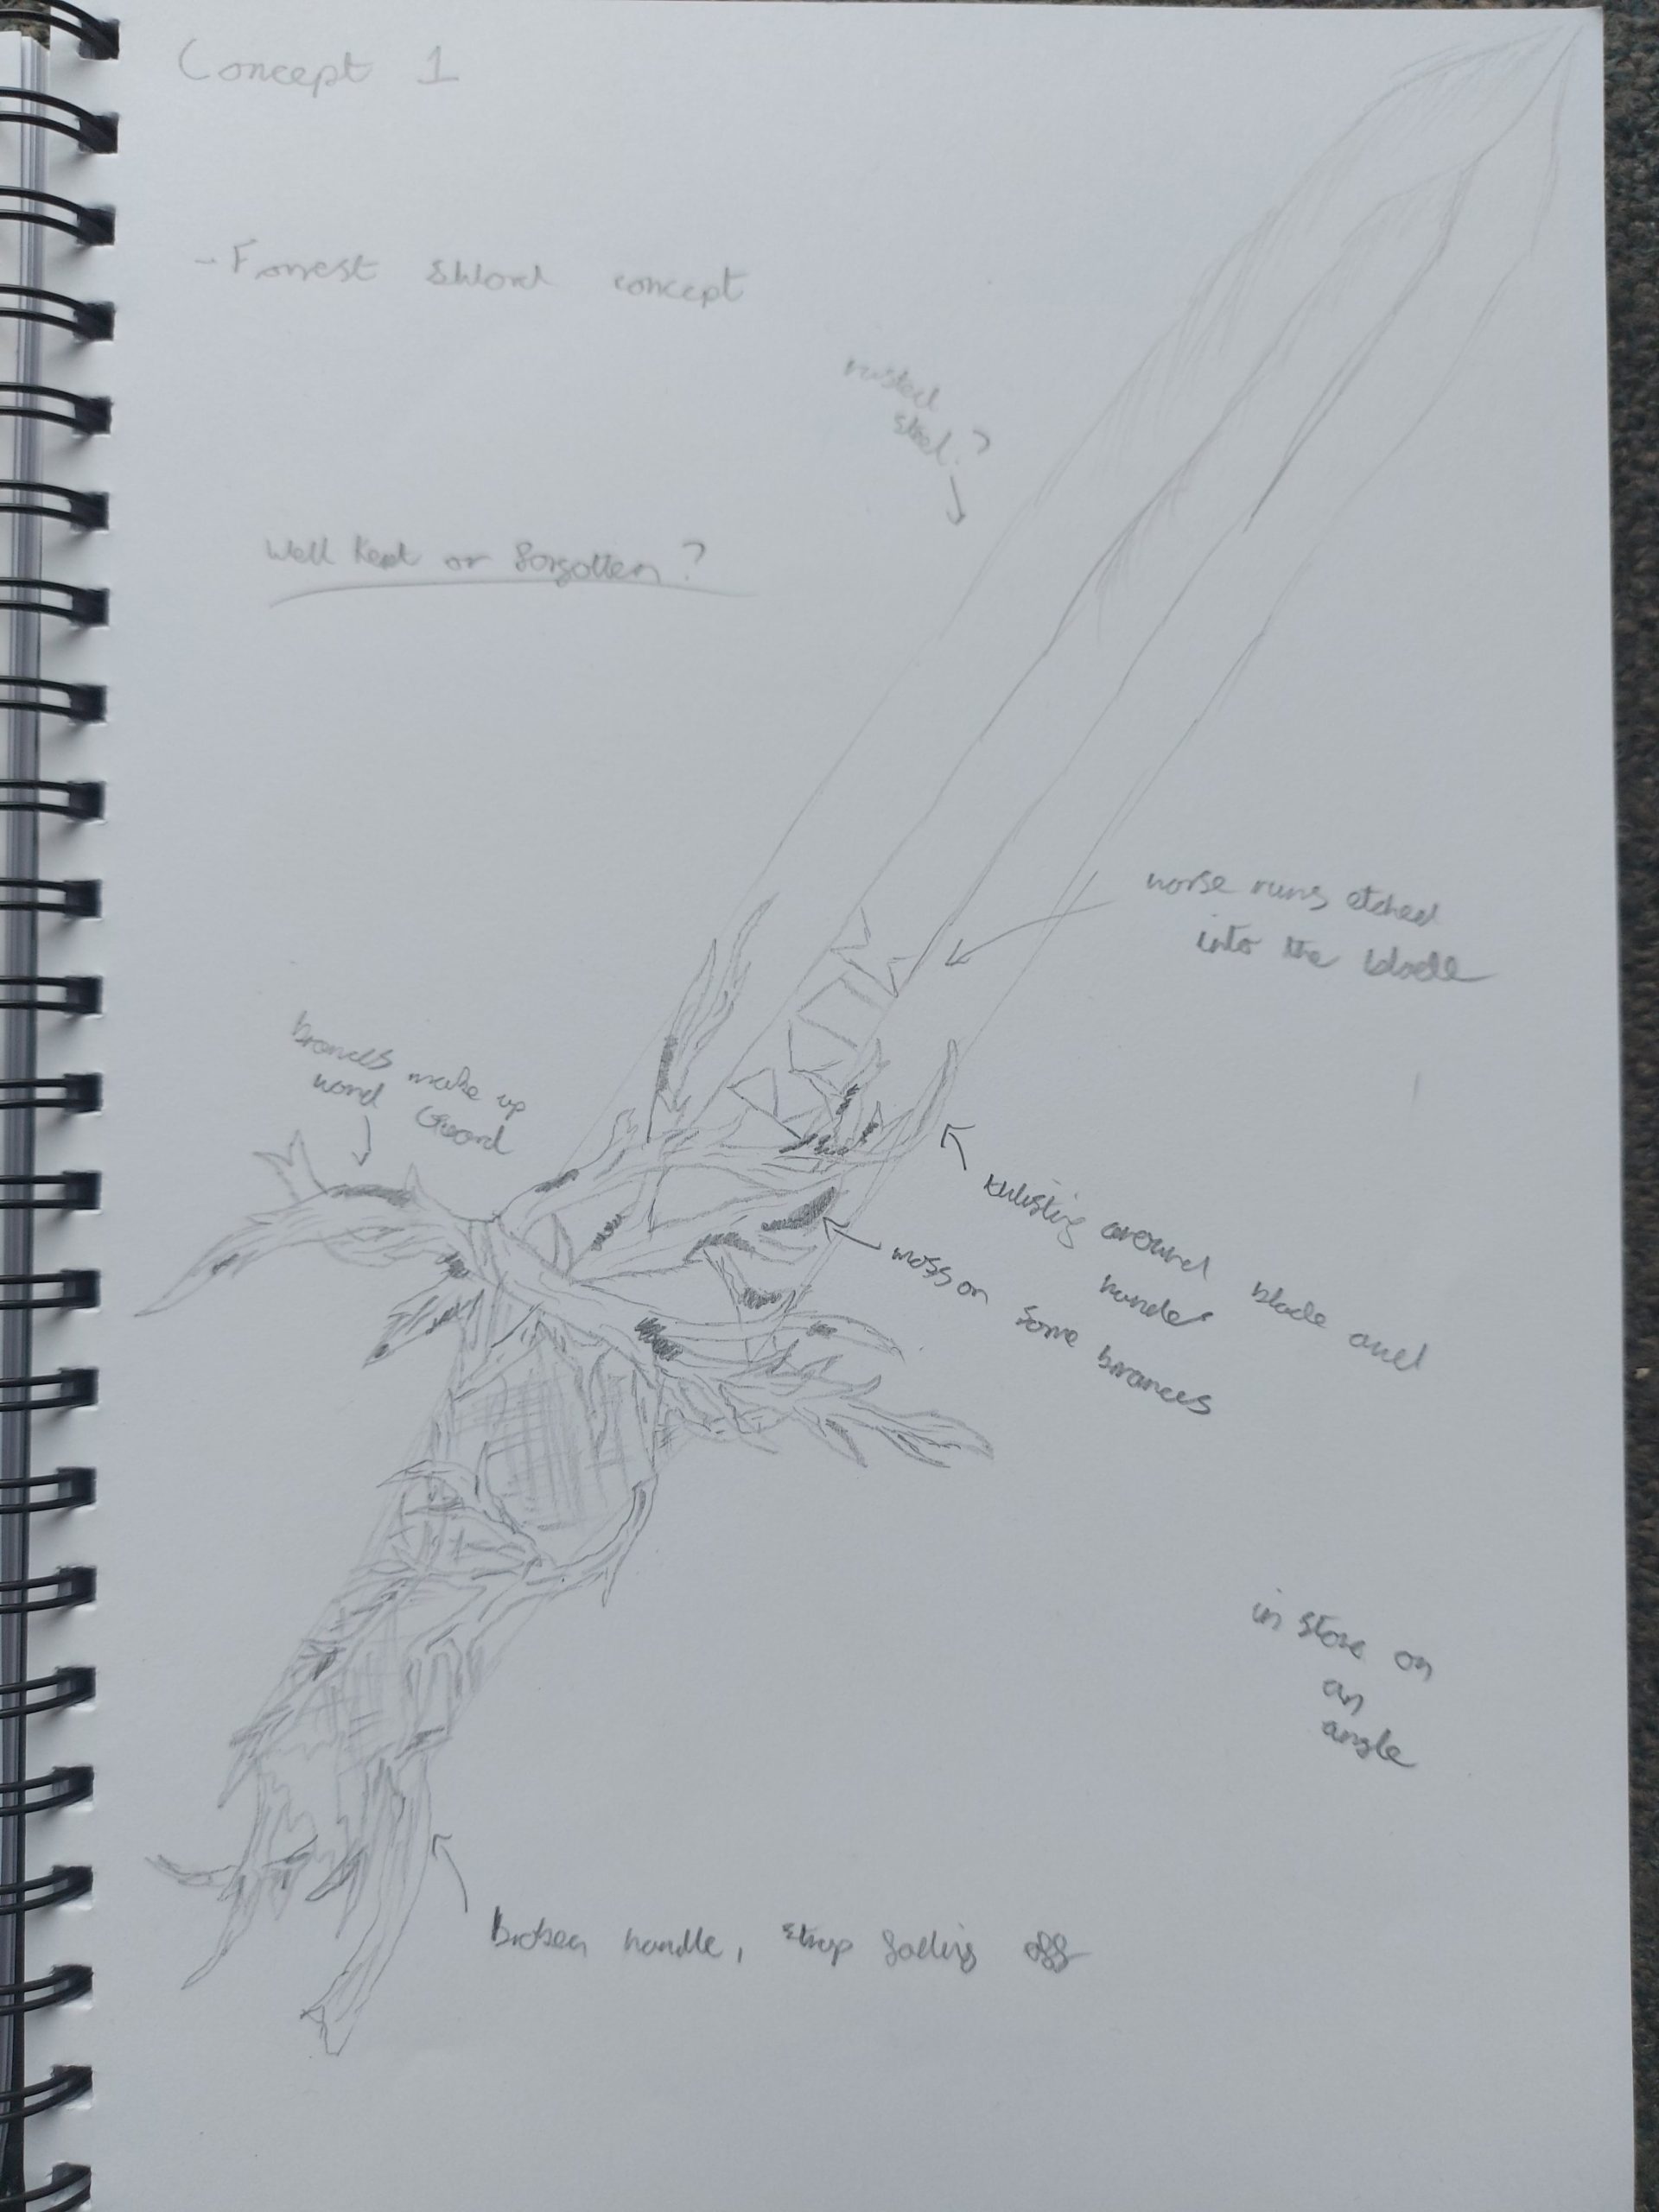 Concept 1
- Forrest sword concept
rusted
steel?
Well kept or forgotten?
norse runs etched
into the blade
brances make up
hand Guard
twisting around blade and
handle
moss on some brances
in stone on
an
angle
broken handle, strap falling off